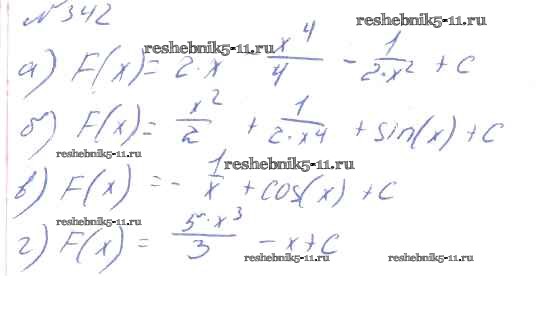 № 342
reshebnik5-11.ru reshebnik5-11.ru
а) F(x) = 2·x - x^4/4 - 1/(2·x^2) + C
б) F(x) = x^2/2 + 1/(2·x^4) + sin(x) + C
reshebnik5-11.ru reshebnik5-11.ru
в) F(x) = - 1/x + cos(x) + C
reshebnik5-11.ru
г) F(x) = 5·x^3/3 - x + C
reshebnik5-11.ru reshebnik5-11.ru